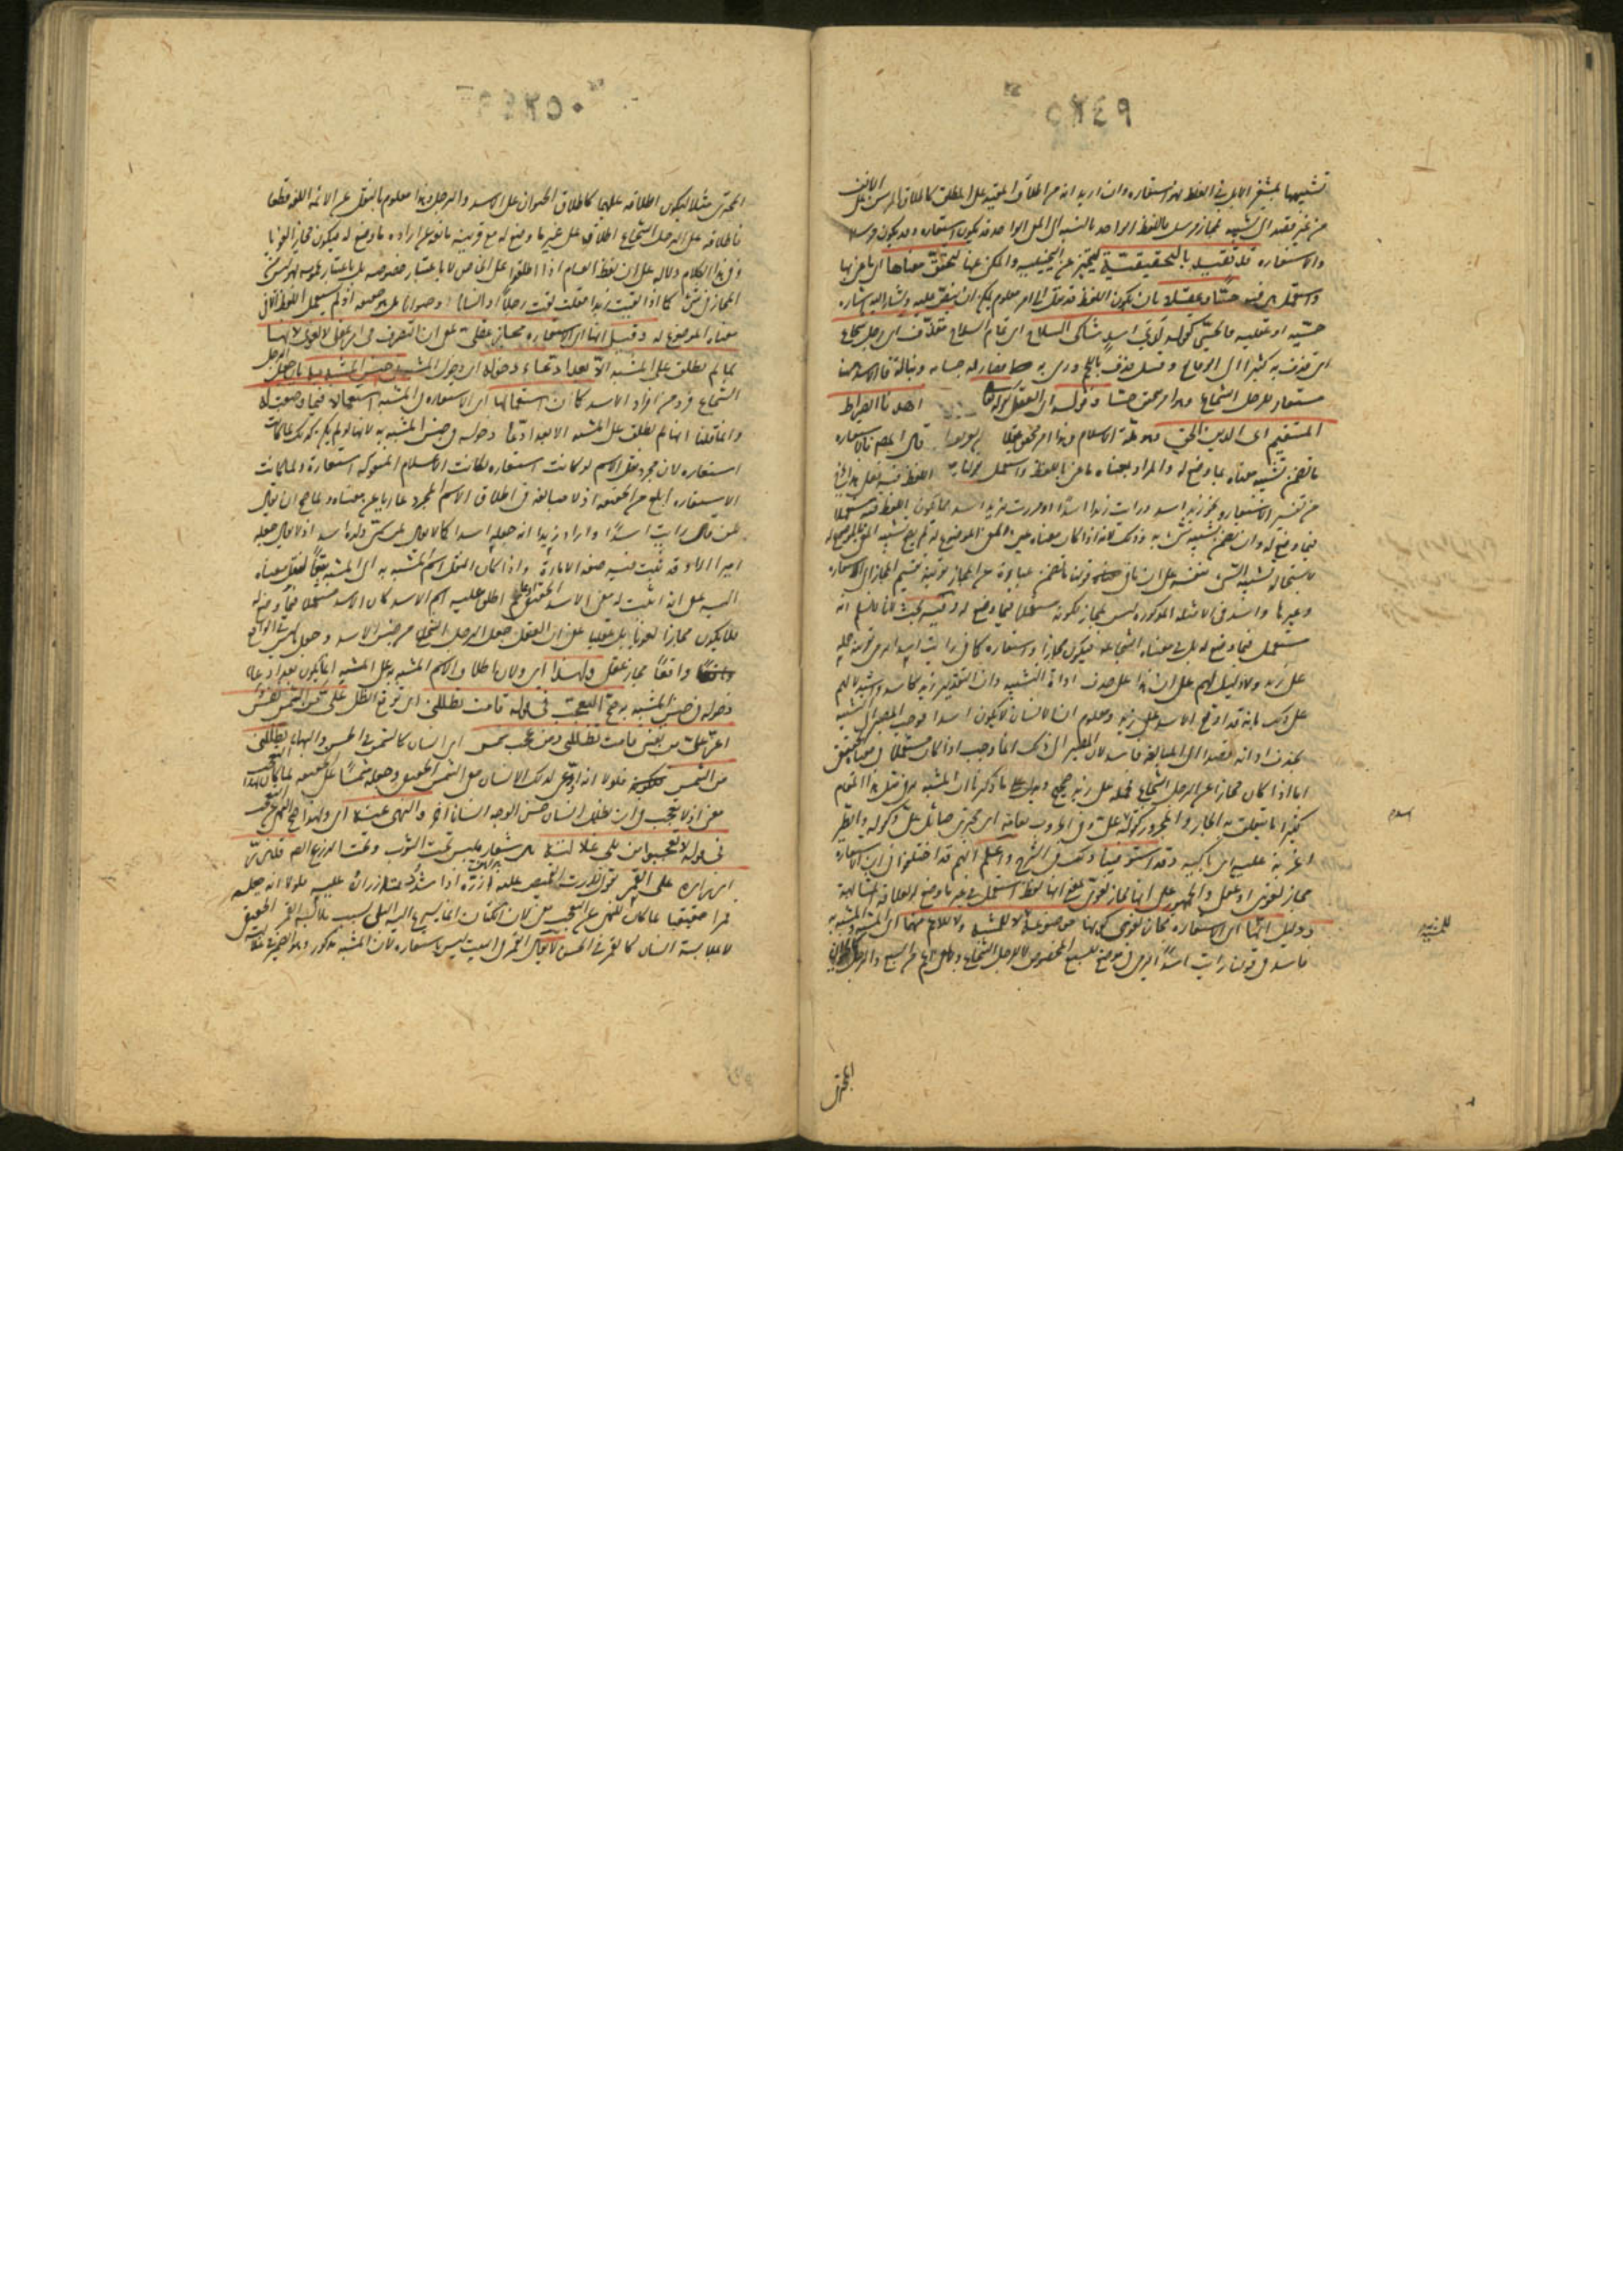 ٥٢٤٩
تشبيهها بمشفر الابل في الغلظ فهو استعارة وان اريد انه من اطلاق المقيد على المطلق كاطلاق المرسن على الانف
من غير قصد الى التشبيه فمجاز مرسل فاللفظ الواحد بالنسبة الى المعنى الواحد قد يكون استعارة وقد يكون مرسلا
والاستعارة قد تقيد بالتحقيقية لتتميز عن التخييلية والمكنى عنها لتحقق معناها اى ما عنى بها
واستعملت هى فيه حسّا او عقلا بان يكون اللفظ قد نقل الى امر معلوم يمكن ان ينص عليه ويشار اليه اشارة
حسّية او عقلية فالحسّى كقوله لدى اسد شاكى السلاح اى تام السلاح مقذّف اى رجل شجاع
اى قذف به كثيرا الى الوقائع وقيل قذف باللحم ورمى به فصار له جسامة ونبالة فالاسد هنا
مستعار للرجل الشجاع وهو امر متحقق حسّا وقوله اى العقلى كقوله تعالى اهدنا الصراط
المستقيم اى الدين الحق وهو ملة الاسلام وهذا امر متحقق عقلا قال المصنف فالاستعارة
ما تضمن تشبيه معناه بما وضع له والمراد بمعناه ما عنى باللفظ واستعمل اللفظ فيه فعلى هذا يخرج
من تفسير الاستعارة نحو زيد اسد ورايت زيدا اسدًا ومررت بزيد اسد مما يكون اللفظ فيه مستعملا
فيما وضع له وان تضمن تشبيه شئ به وذلك لانه اذا كان معناه عين المعنى الموضوع له لم يصح تشبيه المعنى بالموضوع له
لاستحالة تشبيه الشئ بنفسه على ان ما فى قولنا ما تضمن عبارة عن المجاز بقرينة تقسيم المجاز الى الاستعارة
وغيرها واسد فى الامثلة المذكورة ليس بمجاز لكونه مستعملا فيما وضع له وفيه بحث لانا لا نسلم انه
مستعمل فيما وضع له بل فى معناه الشجاع فيكون مجازا واستعارة كما فى رايت اسدا يرمى بقرينة حمله
على زيد ولا دليل لهم على ان هذا على حذف اداة التشبيه وان التقدير زيد كاسد واستدلالهم
على ذلك بانه قد اوقع الاسد على زيد ومعلوم ان الانسان لا يكون اسدا فوجب المصير الى التشبيه
بحذف اداته قصدا الى المبالغة فاسد لان المصير الى ذلك انما يجب اذا كان مستعملا فى معناه الحقيقى
اما اذا كان مجازا عن الرجل الشجاع فحمله على زيد صحيح ويدل على ما ذكرنا ان المشبه به فى مثل هذا المقام
كثيرا ما يتعلق به الجار والمجرور كقوله علىّ وفى الحروب نعامة اى مجترئ صائل علىّ وكقوله والطير
اغربة عليه اى باكية وقد استوفينا ذلك فى الشرح واعلم انهم قد اختلفوا فى ان الاستعارة
مجاز لغوى او عقلى والجمهور على انها مجاز لغوى بمعنى انها لفظ استعمل فى غير ما وضع له لعلاقة المشابهة
ودليل انها اى الاستعارة مجاز لغوى كونها موضوعة للمشبه به لا للمشبه ولا للاعم منهما اى المشبه والمشبه به
فاسد فى قولنا رايت اسدًا يرمى موضوع للسبع المخصوص لا للرجل الشجاع ولا لمعنى اعم من السبع والرجل كالحيوان
المجترى
اسد
للمشبه
٥٢٥٠
المجترى مثلا ليكون اطلاقه عليهما كاطلاق الحيوان على الاسد والرجل وهذا معلوم بالنقل عن الائمة اللغة قطعا
فاطلاقه على الرجل الشجاع اطلاق على غير ما وضع له مع قرينة مانعة عن ارادة ما وضع له فيكون مجازا لغويا
وفى هذا الكلام دلالة على ان لفظ العام اذا اطلق على الخاص لا باعتبار خصوصه بل باعتبار عمومه فهو ليس من
المجاز فى شئ كما اذا لقيت زيدا فقلت لقيت رجلاً او انسانا او حيوانا بل هو حقيقة اذ لم يستعمل اللفظ الا فى
معناه الموضوع له وقيل انها اى الاستعارة مجاز عقلى بمعنى ان التصرف فى امر عقلى لا لغوى لانها
لما لم تطلق على المشبه الا بعد ادعاء دخوله اى دخول المشبه فى جنس المشبه به بان جعل الرجل
الشجاع فردا من افراد الاسد كان استعمالها اى الاستعارة فى المشبه استعمالا فيما وضعت له
وانما قلنا انها لم تطلق على المشبه الا بعد ادّعاء دخوله فى جنس المشبه به لانها لو لم يكن كذلك لما كانت
استعارة لان مجرد نقل الاسم لو كانت استعارة لكانت الاعلام المنقولة استعارة ولما كانت
الاستعارة ابلغ من الحقيقة اذ لا مبالغة فى اطلاق الاسم المجرد عاريا عن معناه ولما صح ان يقال
لمن قال رايت اسدًا واراد زيدا انه جعله اسدا كما لا يقال لمن سمى ولده اسدا اذ لا يقال جعله
اميرا الا وقد ثبت فيه صفة الامارة واذا كان نقل اسم المشبه به الى المشبه تبعًا لنقل معناه
اليه بمعنى انه اثبت له معنى الاسد الحقيقى ادعاء ثم اطلق عليه اسم الاسد كان الاسد مستعملا فيما وضع له
فلا يكون مجازا لغويا بل عقليا بمعنى ان العقل جعل الرجل الشجاع من جنس الاسد وجعل ما ليس فى الواقع
واقعًا مجاز عقلى ولهذا اى ولان اطلاق اسم المشبه به على المشبه انما يكون بعد ادعاء
دخوله فى جنس المشبه به صح التعجب فى قوله قامت تظللنى اى توقع الظل علىّ من الشمس نفس
اعزّ علىّ من نفسى قامت تظللنى ومن عجب شمس اى انسان كالشمس فى الحسن والبهاء تظللنى
من الشمس فلولا انه ادّعى لذلك الانسان معنى الشمس الحقيقى وجعله شمسًا على الحقيقة لما كان لهذا التعجب
معنى اذ لا تعجب فى ان يظلل انسان حسن الوجه انسانا اخر والنهى عنه اى ولهذا صح النهى عن التعجب
فى قوله لا تعجبوا من بلى غلالته هى شعار يلبس تحت الثوب وتحت الدرع ايضا قد زرّ
ازراره على القمر تقول زررت القميص عليه ازرّه اذا شددت ازراره عليه فلولا انه جعله
قمرا حقيقيا لما كان للنهى عن التعجب معنى لان الكتان انما يسرع اليه البلى بسبب ملابسة القمر الحقيقى
لا بملابسة انسان كالقمر فى الحسن لا يقال القمر فى البيت ليس باستعارة لان المشبه مذكور وهو الضمير فى غلالته